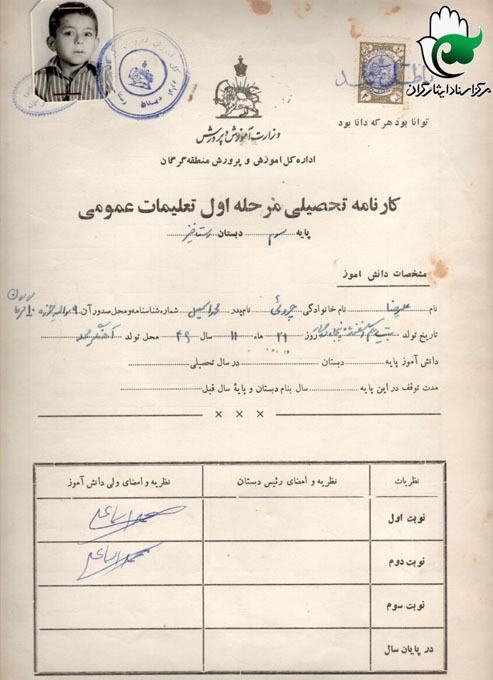 مرکز اسناد ایثارگران
باطل شد
توانا بود هر که دانا بود
وزارت آموزش و پرورش
اداره کل آموزش و پرورش منطقه گرگان
کارنامه تحصیلی مرحله اول تعلیمات عمومی
پایه سوم دبستان رستاخیز
مشخصات دانش آموز
نام علیرضا نام خانوادگی نام پدر شماره شناسنامه و محل صدور آن
تاریخ تولد روز ۲۱ ماه ۱۱ سال ۴۹ محل تولد
دانش آموز پایه دبستان در سال تحصیلی
مدت توقف در این پایه سال بنام دبستان و پایهٔ سال قبل
× × ×
نظریات نظریه و امضای رئیس دبستان نظریه و امضای ولی دانش آموز
نوبت اول
نوبت دوم
نوبت سوم
در پایان سال